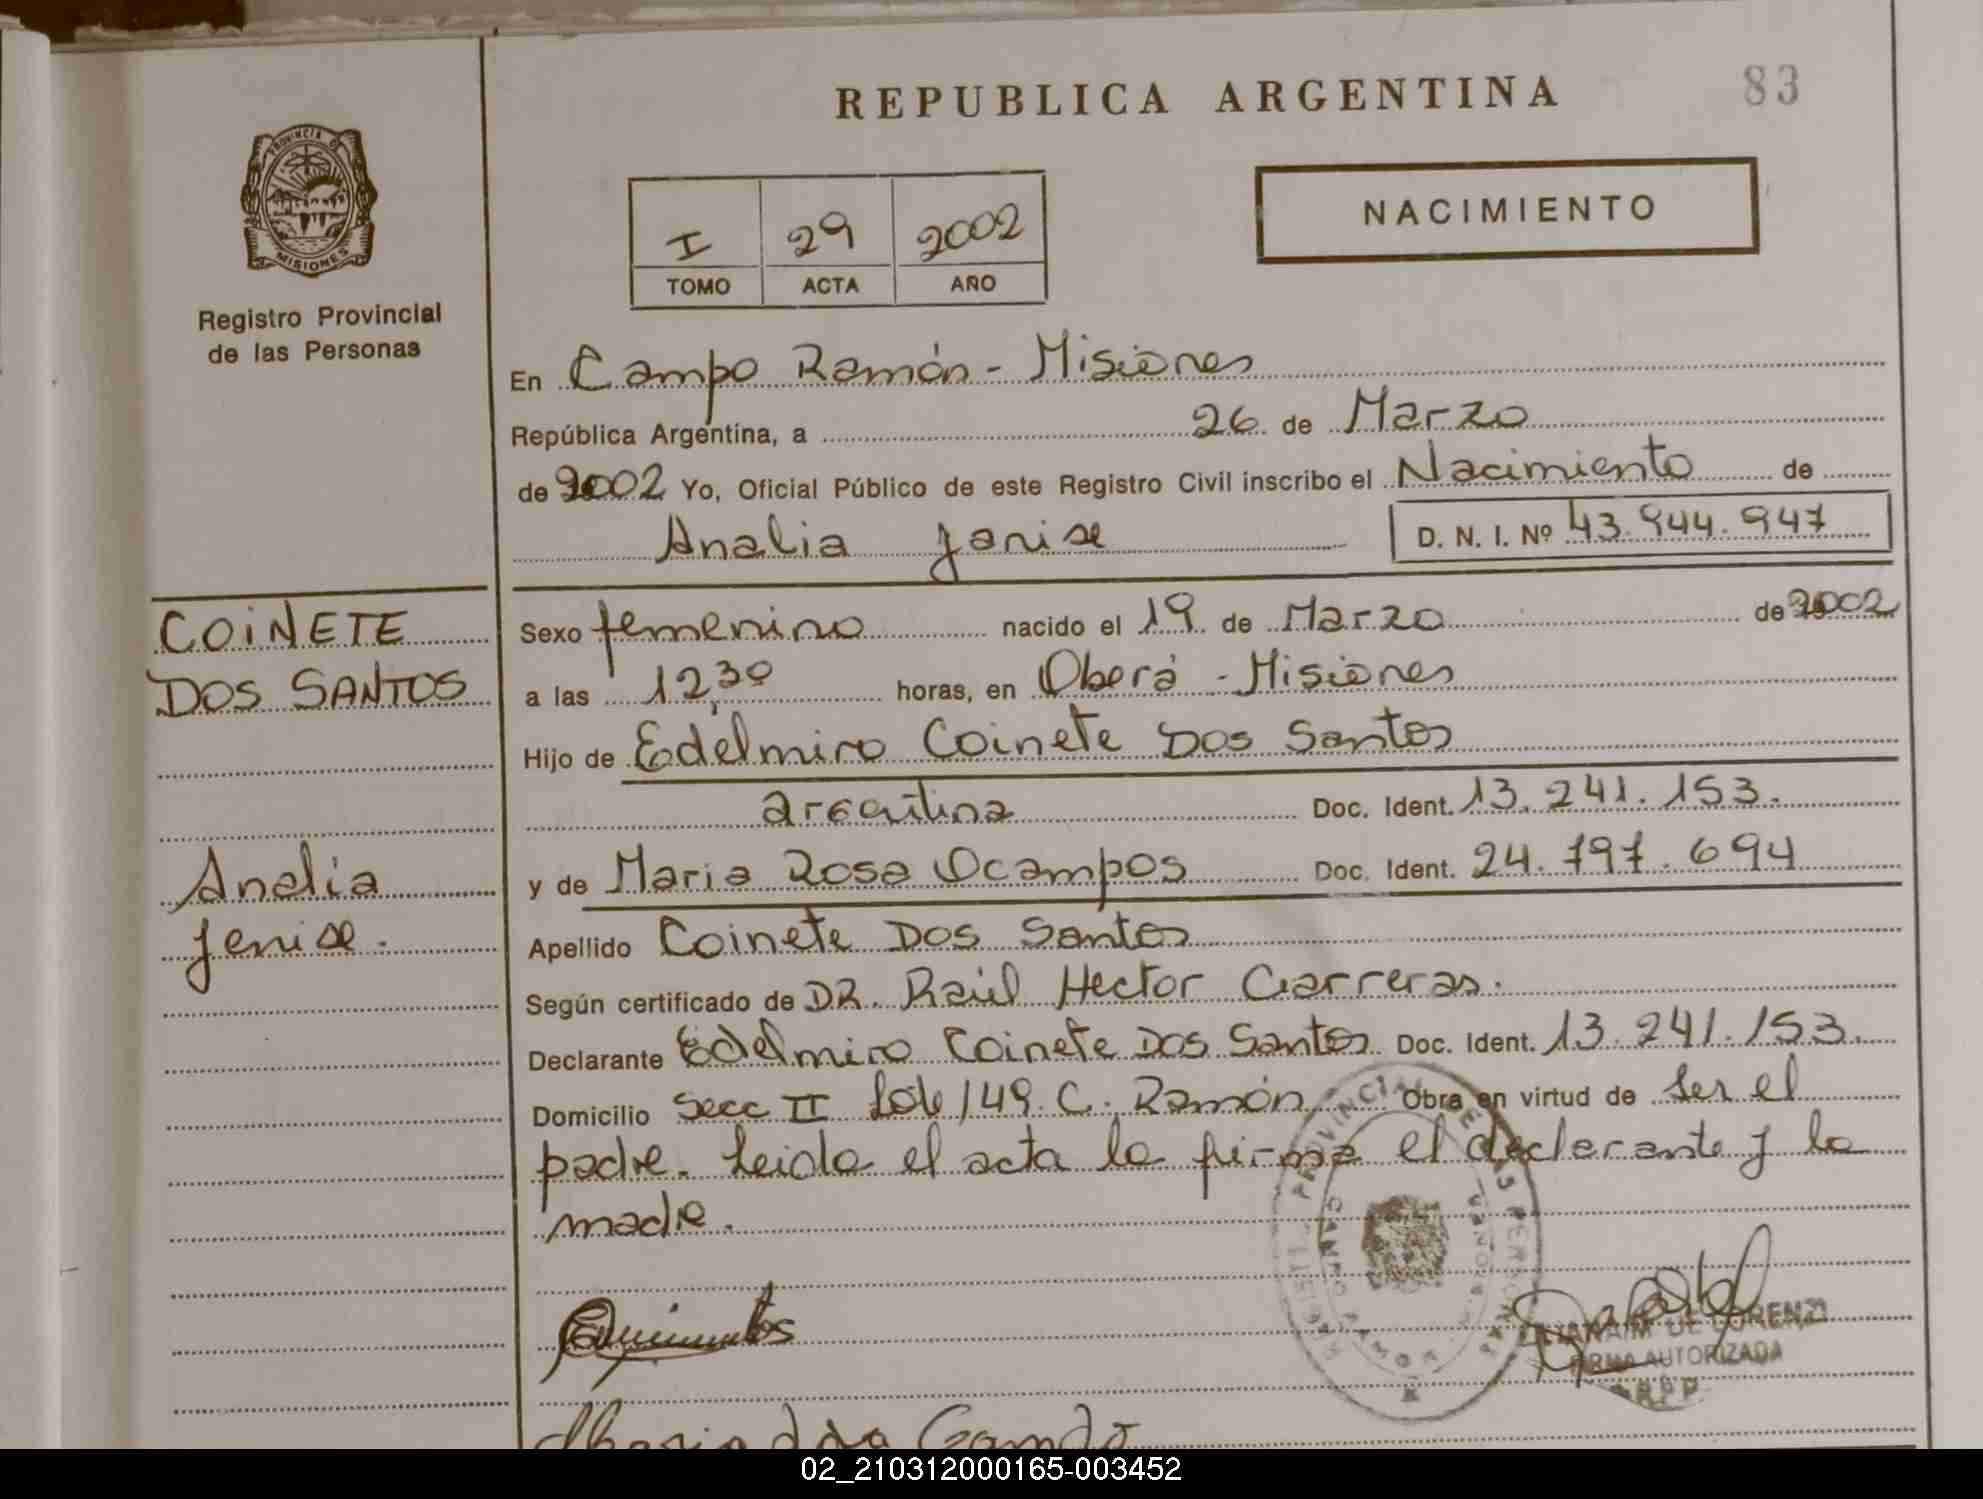 REPUBLICA ARGENTINA
83
PROVINCIA DE
MISIONES
Registro Provincial
de las Personas
I 29 2002
TOMO ACTA AÑO
NACIMIENTO
En Campo Ramón - Misiones
República Argentina, a 26 de Marzo
de 2002 Yo, Oficial Público de este Registro Civil inscribo el Nacimiento de
Analia Janise
D. N. I. Nº 43.944.947
COINETE
DOS SANTOS
Analia
Jenise.
Sexo femenino nacido el 19 de Marzo de 2002
a las 12,30 horas, en Oberá - Misiones
Hijo de Edelmiro Coinete Dos Santos
argentina Doc. Ident. 13.241.153.
y de Maria Rosa Ocampos Doc. Ident. 24.797.694
Apellido Coinete Dos Santos
Según certificado de DR. Raúl Hector Carreras.
Declarante Edelmiro Coinete Dos Santos Doc. Ident. 13.241.153.
Domicilio Secc II Lote 149 C. Ramón Obra en virtud de Ser el
padre. Leida el acta la firma el declarante y la
madre.
DE LORENZI
FIRMA AUTORIZADA
02_210312000165-003452